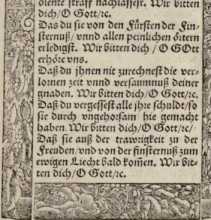 diente straff nachlassest. Wir bitten
dich/ O Gott/ꝛc.
Das du sie von den Fürsten der Fin-
sternuß/ vnnd allen peinlichen örtern
erledigst. Wir bitten dich/ O GOtt
erhöre vns.
Daß du jhnen nit zurechnest die ver-
lornen zeit vnnd versaumnuß deiner
gnaden. Wir bitten dich/ O Gott/ꝛc.
Daß du vergessest alle jhre schuldt/so
sie durch vngehorsam hie gemacht
haben. Wir bitten dich/ O Gott/ꝛc/
Daß sie auß der trawrigkeit zu der
Freuden/ vnd von der finsternuß zum
ewigen Liecht bald kom̃en. Wir bit-
ten dich/ O Gott/ꝛc.